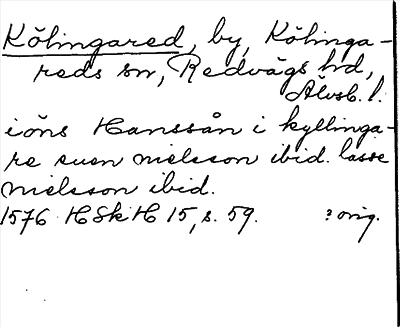 Kölingared, by, Kölinga-
reds sn, Redvägs hd,
Älvsb. l.
iöns Hanssån i kyllinga-
re suen nielsson ibid. lasse
nielsson ibid.
1576 HSkH 15, s. 59. ? orig.